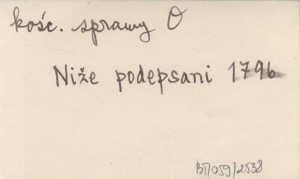 kość. sprawy O
Niże podepsani 1796
BJ/059/2538